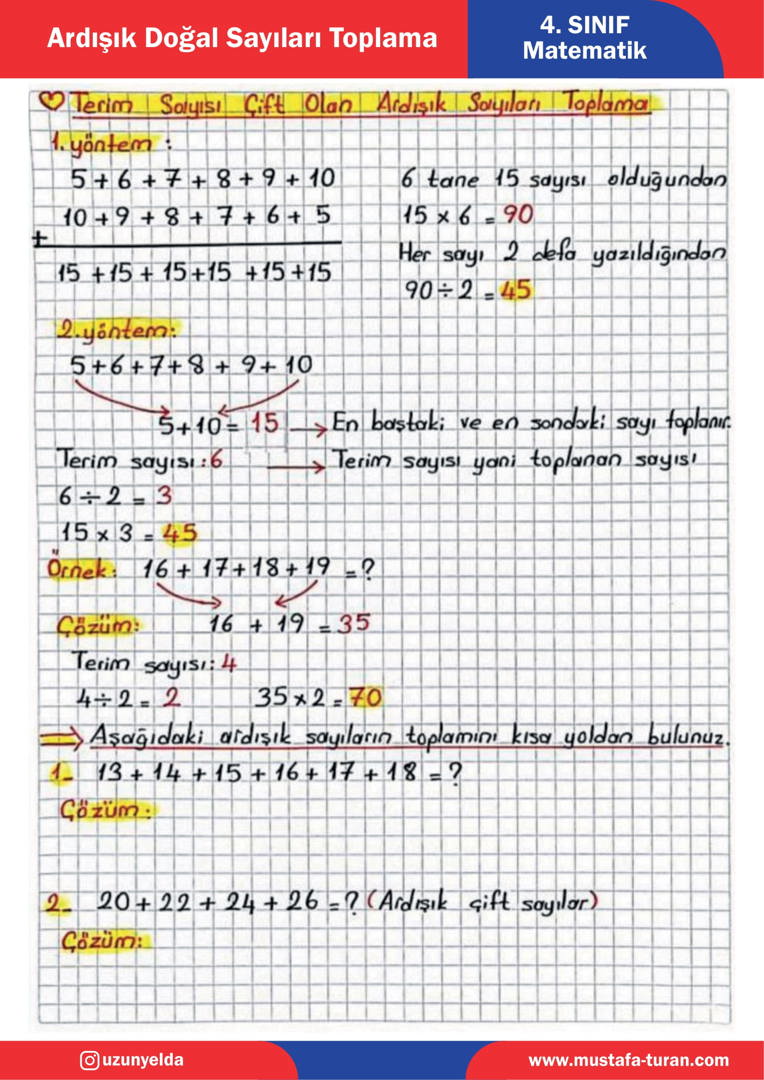 Ardışık Doğal Sayıları Toplama
4. SINIF
Matematik
Terim Sayısı Çift Olan Ardışık Sayıları Toplama
1. yöntem :
5 + 6 + 7 + 8 + 9 + 10
10 + 9 + 8 + 7 + 6 + 5
+
15 + 15 + 15 + 15 + 15 + 15
6 tane 15 sayısı olduğundan
15 x 6 = 90
Her sayı 2 defa yazıldığından
90 ÷ 2 = 45
2. yöntem:
5 + 6 + 7 + 8 + 9 + 10
5 + 10 = 15 → En baştaki ve en sondaki sayı toplanır.
Terim sayısı : 6 → Terim sayısı yani toplanan sayısı
6 ÷ 2 = 3
15 x 3 = 45
Örnek: 16 + 17 + 18 + 19 = ?
Çözüm: 16 + 19 = 35
Terim sayısı: 4
4 ÷ 2 = 2 35 x 2 = 70
⇒ Aşağıdaki ardışık sayıların toplamını kısa yoldan bulunuz.
1- 13 + 14 + 15 + 16 + 17 + 18 = ?
Çözüm :
2- 20 + 22 + 24 + 26 = ? (Ardışık çift sayılar)
Çözüm:
uzunyelda
www.mustafa-turan.com